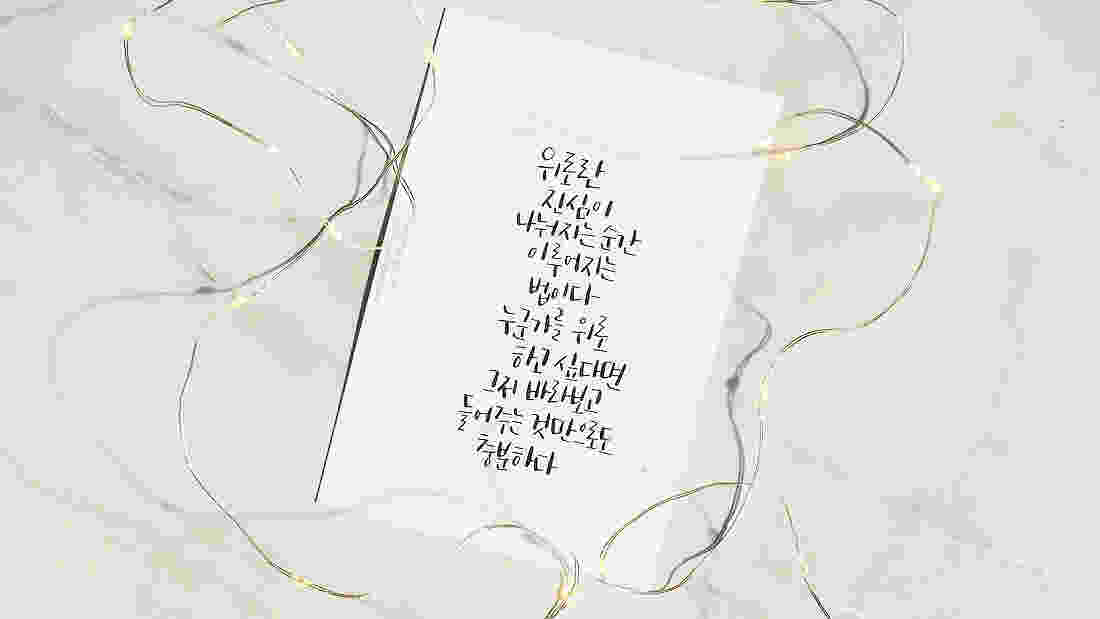 위로란
진심이
나눠지는 순간
이루어지는
법이다
누군가를 위로
하고 싶다면
그저 바라보고
들어주는 것만으로도
충분하다